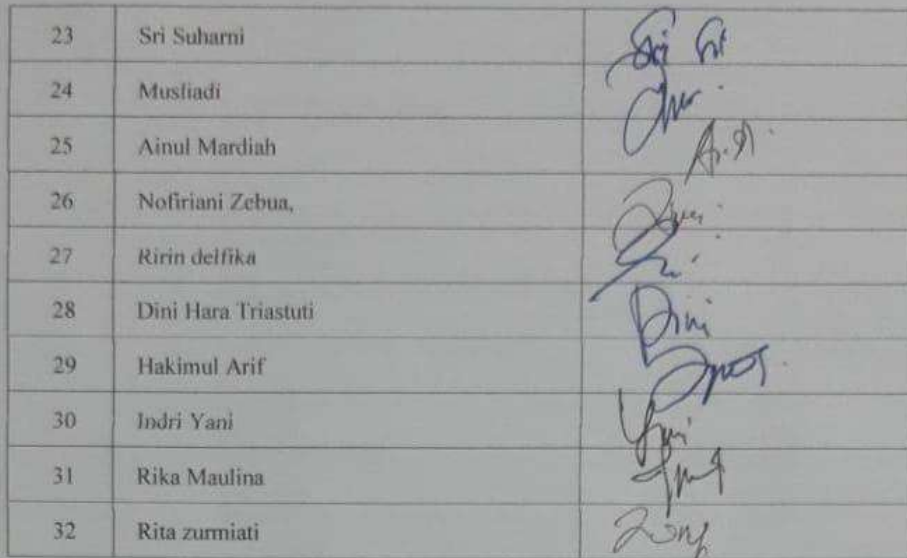 23 Sri Suharni Sri
24 Musliadi
25 Ainul Mardiah
26 Nofiriani Zebua,
27 Ririn delfika
28 Dini Hara Triastuti Dini
29 Hakimul Arif
30 Indri Yani
31 Rika Maulina
32 Rita zurmiati